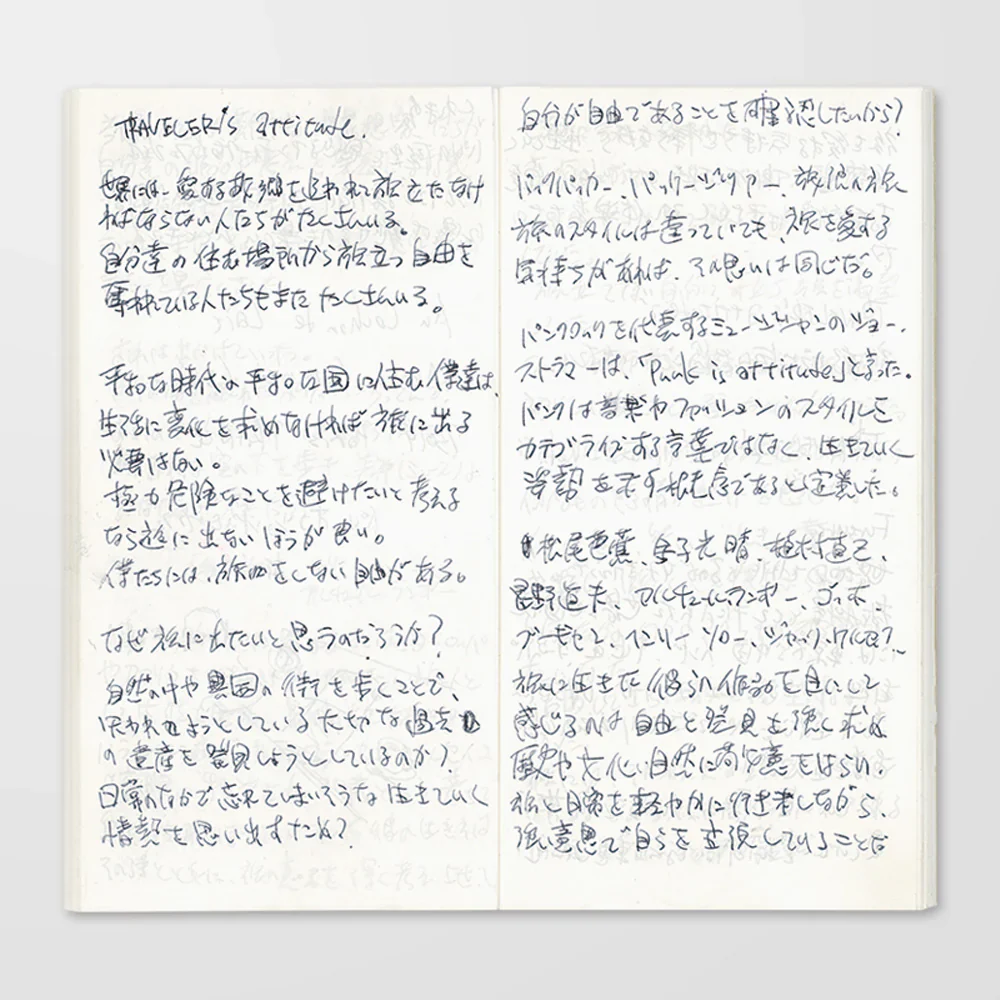 TRAVELER's attitude.
世界には、愛する故郷を追われ旅立たなけ
ればならない人たちがたくさんいる。
自分達の住む場所から旅立つ自由を
奪われている人たちもまたたくさんいる。
平和な時代の平和な国に住む僕達は、
生活に変化を求めなければ旅に出る
必要はない。
極力危険なことを避けたいと考える
なら旅に出ないほうが良い。
僕たちには、旅をしない自由がある。
なぜ旅に出たいと思うのだろうか?
自然の中や異国の街を歩くことで、
失われようとしている大切な過去
の遺産を発見しようとしているのか?
日常のなかで忘れてしまいそうな生きていく
情熱を思い出すため?
自分が自由であることを確認したいから?
バックパッカー、パッケージツアー、放浪の旅
旅のスタイルは違っていても、旅を愛する
気持ちがあれば、その思いは同じだ。
パンクロックを代表するミュージシャンのジョー・
ストラマーは、「Punk is attitude」と言った。
パンクは音楽やファッションのスタイルを
カテゴライズする言葉ではなく、生きていく
姿勢を示す概念であると定義した。
松尾芭蕉、金子光晴、植村直己、
星野道夫、アルチュール・ランボー、ゴッホ、
ブーゲンセン、ヘンリー・ソロー、ジャック・ケルアック…
旅に生きた彼らの作品を目にして
感じるのは自由と発見を強く求め
歴史や文化、自然に敬意をはらい、
旅と日常を軽やかに行き来しながら
強い意思で自らを主張していることだ